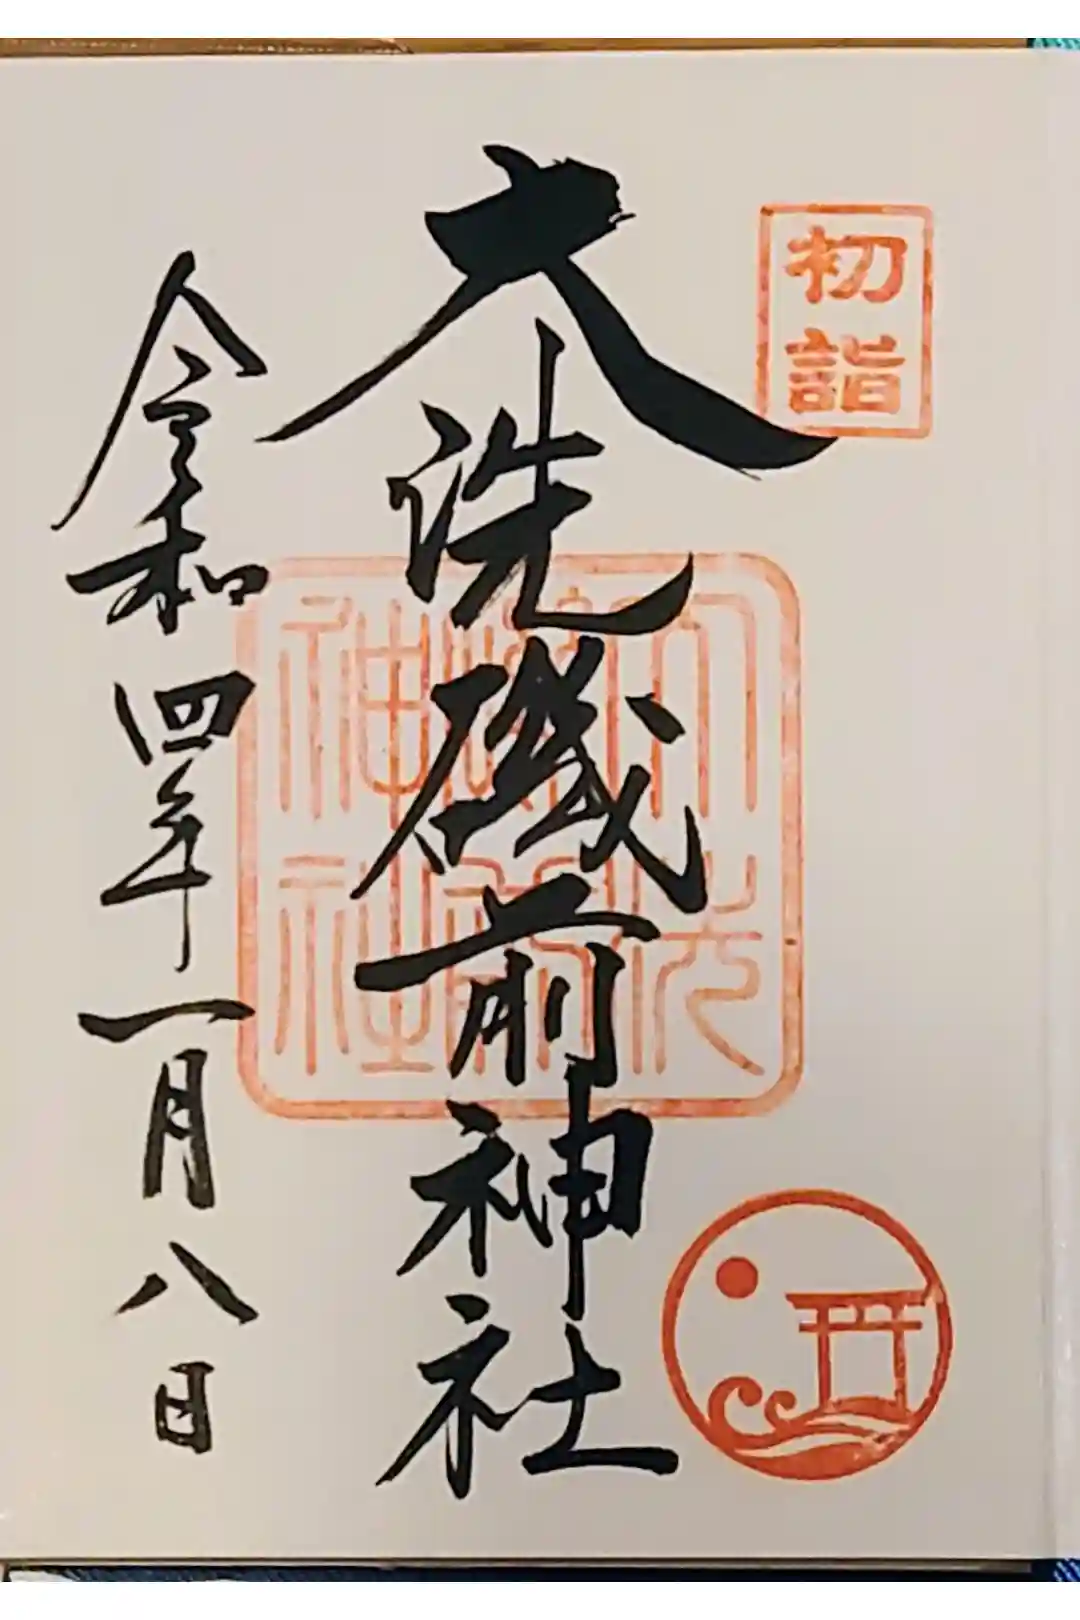 初詣
大洗磯前神社
大洗
磯前
神社
令和四年一月八日